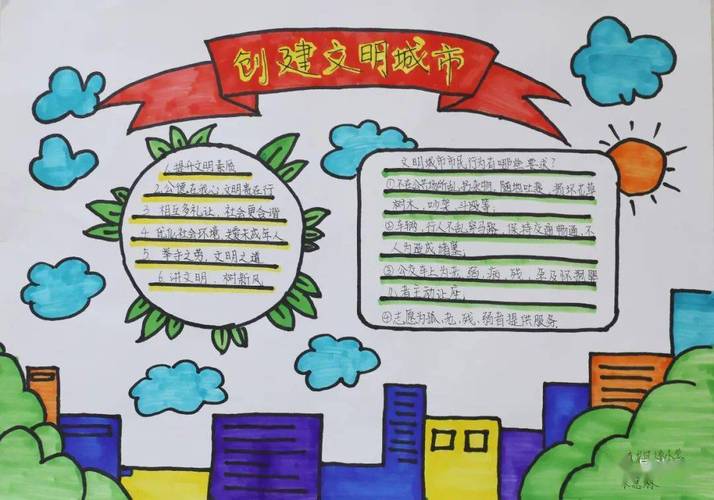 创建文明城市
1.提升文明素质
2.公德在我心 文明靠在行
3 相互多礼让,社会更合谐
4 优化社会环境,关爱未成年人
5 举手之劳,文明之道
6 讲文明,树新风
文明城市市民行为有哪些要求?
①不在公共场所乱扔杂物,随地吐痰,损坏花草
树木,吵架,斗殴等;
②车辆,行人不乱穿马路,保持交通畅通,不
人为造成堵塞;
③公交车上为老,弱,病,残,孕及怀抱婴
儿者主动让座;
④志愿为孤、老、残、弱者提供服务